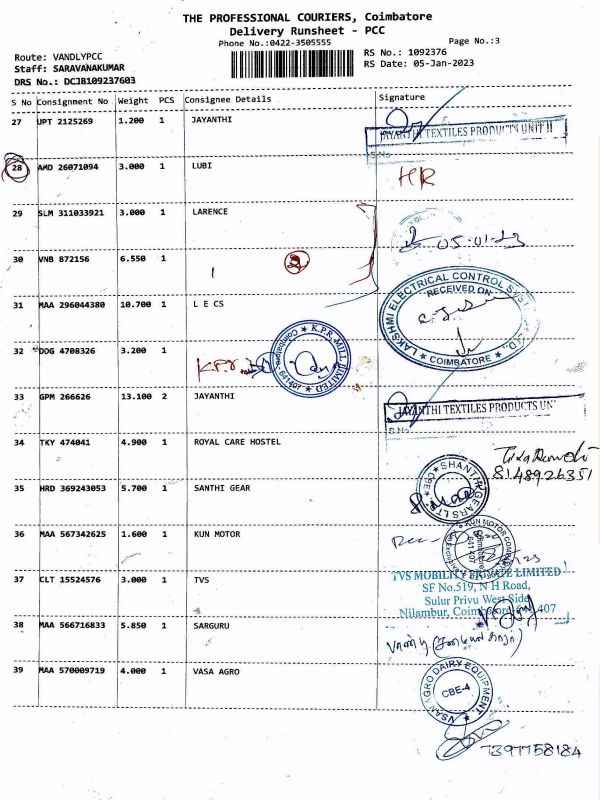 THE PROFESSIONAL COURIERS, Coimbatore
Delivery Runsheet - PCC
Phone No.:0422-3505555
Page No.:3
Route: VANDLYPCC
RS No.: 1092376
Staff: SARAVANAKUMAR
RS Date: 05-Jan-2023
DRS No.: DCJB109237603
S No Consignment No Weight PCS Consignee Details Signature
27 UPT 2125269 1.200 1 JAYANTHI
JAYANTHI TEXTILES PRODUCTS UNIT II
S.No
28 AMD 26071094 3.000 1 LUBI
HR
29 SLM 311033921 3.000 1 LARENCE
05-01-23
30 VNB 872156 6.550 1
31 MAA 296044380 10.700 1 L E CS
LAKSHMI ELECTRICAL CONTROL
RECEIVED ON
COIMBATORE
32 DDG 4708326 3.200 1
K.P.R
K.P.R. MILL LIMITED
Coimbatore 641407
33 GPM 266626 13.100 2 JAYANTHI
JAYANTHI TEXTILES PRODUCTS UN
S.No
34 TKY 474041 4.900 1 ROYAL CARE HOSTEL
8148926351
35 HRD 369243053 5.700 1 SANTHI GEAR
SHANTHI GEARS LTD
CBE
36 MAA 567342625 1.600 1 KUN MOTOR
KUN MOTOR COMPANY
641 407
37 CLT 15524576 3.000 1 TVS
TVS MOBILITY PRIVATE LIMITED
SF No.519, N H Road,
Sulur Privu West Side
Nilambur, Coimbatore 641 407
38 MAA 566716833 5.850 1 SARGURU
39 MAA 570009719 4.000 1 VASA AGRO
VSAN AGRO DAIRY EQUIPMENT
CBE-4
7397758184